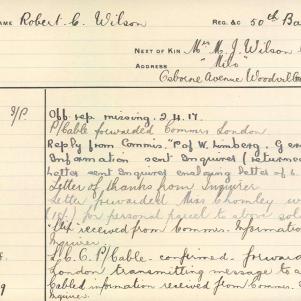 NAME Robert. C. Wilson REG. &C 50th Ba
NEXT OF KIN Mrs M. J. Wilson
ADDRESS "Milo"
Osborne Avenue Woodville
Off. rep. missing. 2.4.17.
P/Cable forwarded Commrs London
Reply from Commis. "P of W. Limberg. Ger
Information sent Inquirer (returned
Letter sent Inquirer enclosing letter of
Letter of thanks from Inquirer
Letter forwarded Miss Chomley
for personal parcel to above
received from Commr. Information
Inquirer
P/Cable confirmed forward
London transmitting message to
Cabled information received from Comm.
Inquirer